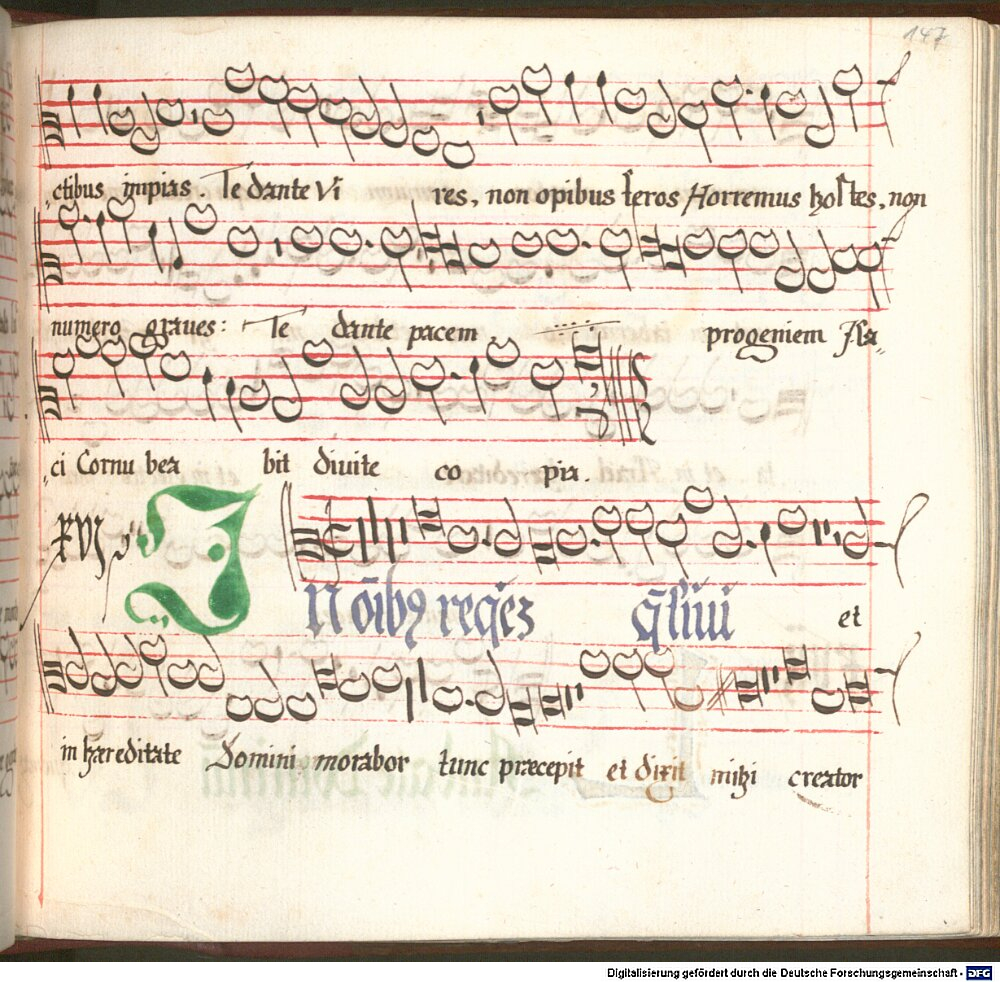 147
ctibus impias. Te dante Vi res, non opibus feros Horremus hostes, non
numero graues: Te dante pacem progeniem Isa„
„ci Cornu bea bit diuite co pia.
XVI
IN oībꝯ reqē̄z q̄siui et
in hæreditate Domini morabor tunc præcepit et dixit mihi creator
Digitalisierung gefördert durch die Deutsche Forschungsgemeinschaft - DFG